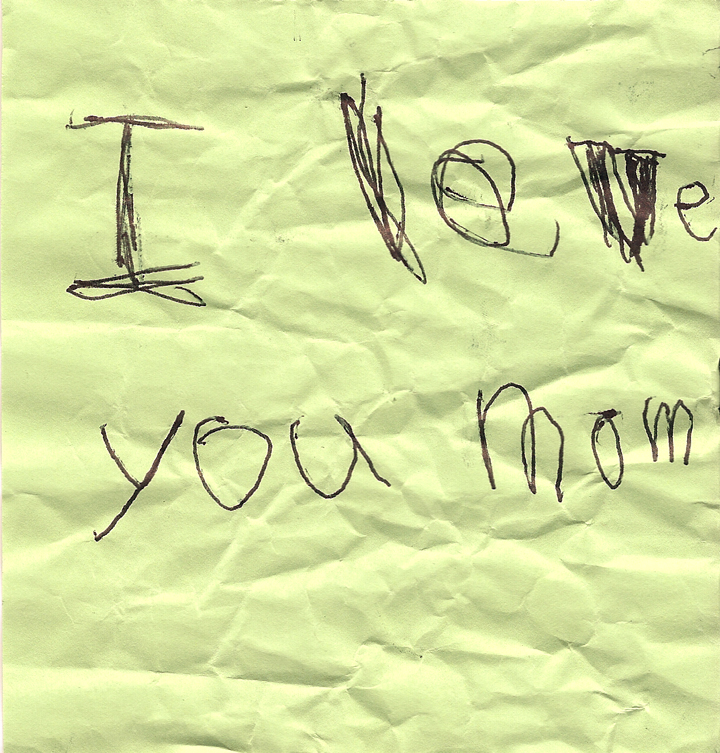 I love
you mom